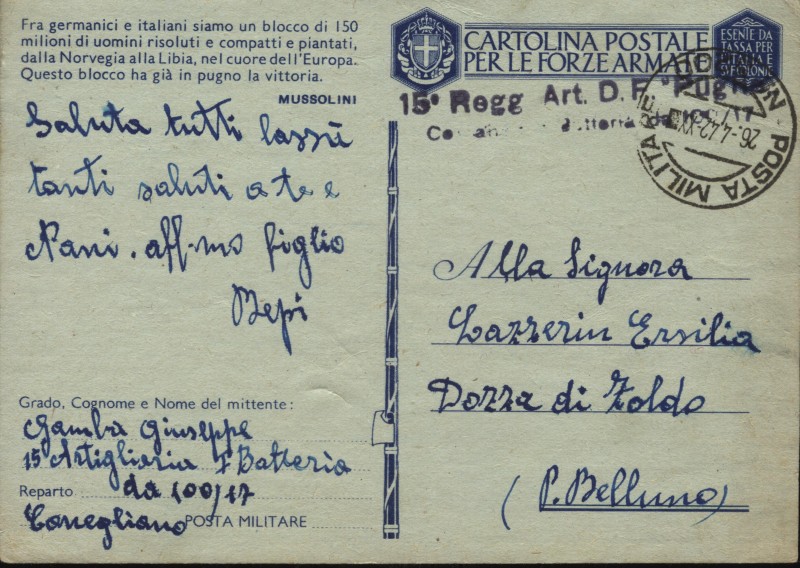 Fra germanici e italiani siamo un blocco di 150
milioni di uomini risoluti e compatti e piantati,
dalla Norvegia alla Libia, nel cuore dell'Europa.
Questo blocco ha già in pugno la vittoria.
MUSSOLINI
Saluta tutti lassù
tanti saluti a te e
Nani. aff-mo figlio
Bepi
Grado, Cognome e Nome del mittente:
Gamba Giuseppe
15° Artiglieria 7 Batteria
Reparto da 100/17
Conegliano POSTA MILITARE
CARTOLINA POSTALE
PER LE FORZE ARMATE
ESENTE DA
TASSA PER
ITALIA E
COLONIE
15° Regg Art. D. F. "Puglie"
Batteria da 100/17
POSTA MILITARE
26.4.42.XX
Alla Signora
Lazzerin Ersilia
Dozza di Zoldo
(P. Belluno)